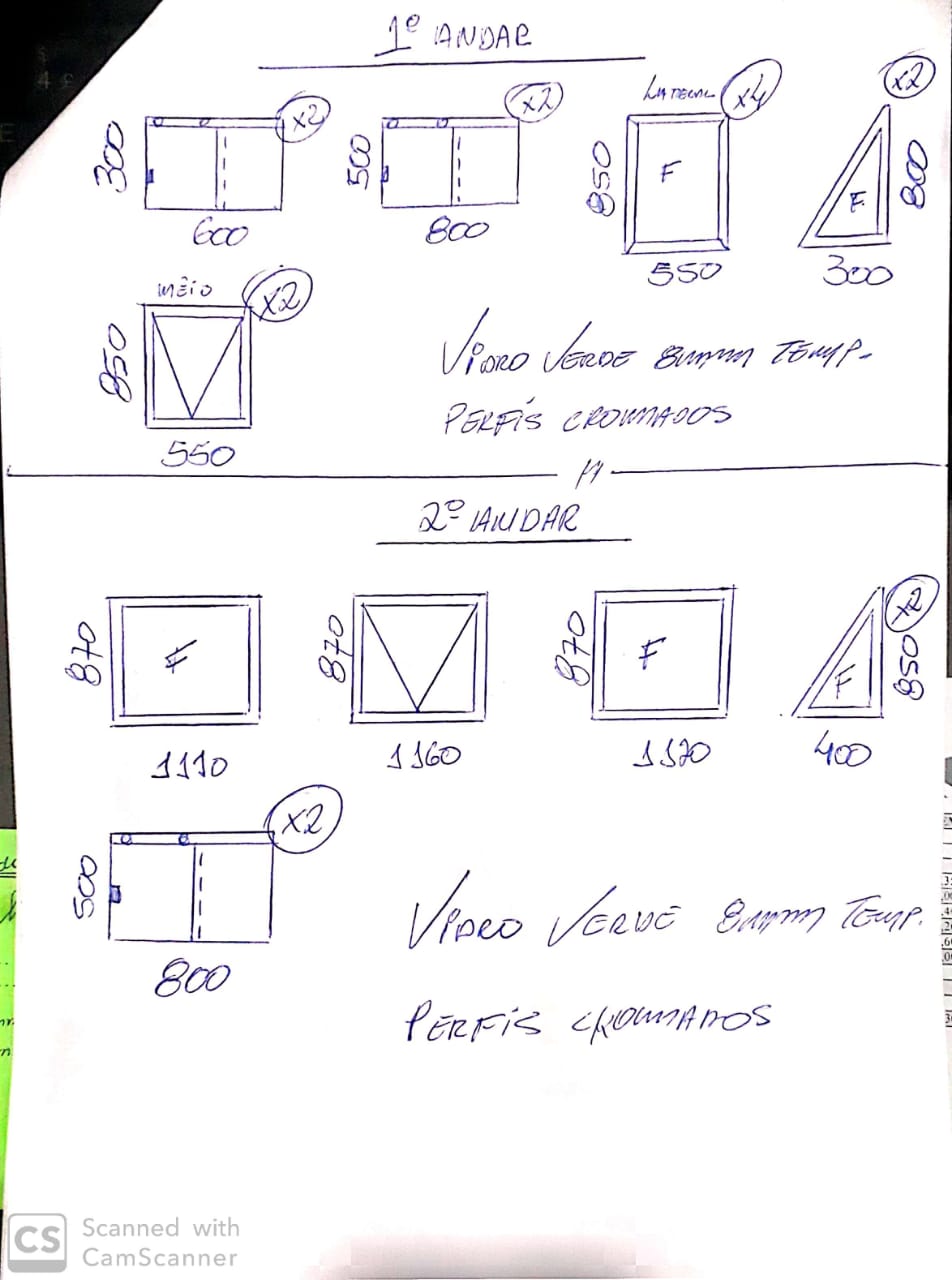 1º ANDAR
x2
300
600
x2
500
800
LATERAL
x4
850
F
550
x2
800
F
300
MÊIO
x2
850
550
VIDRO VERDE 8mm TEMP.
PERFÍS CROMADOS
2º ANDAR
870
F
1110
870
1160
870
F
1120
x2
850
F
400
x2
500
800
VIDRO VERDE 8mm TEMP.
PERFÍS CROMADOS
CS Scanned with
CamScanner